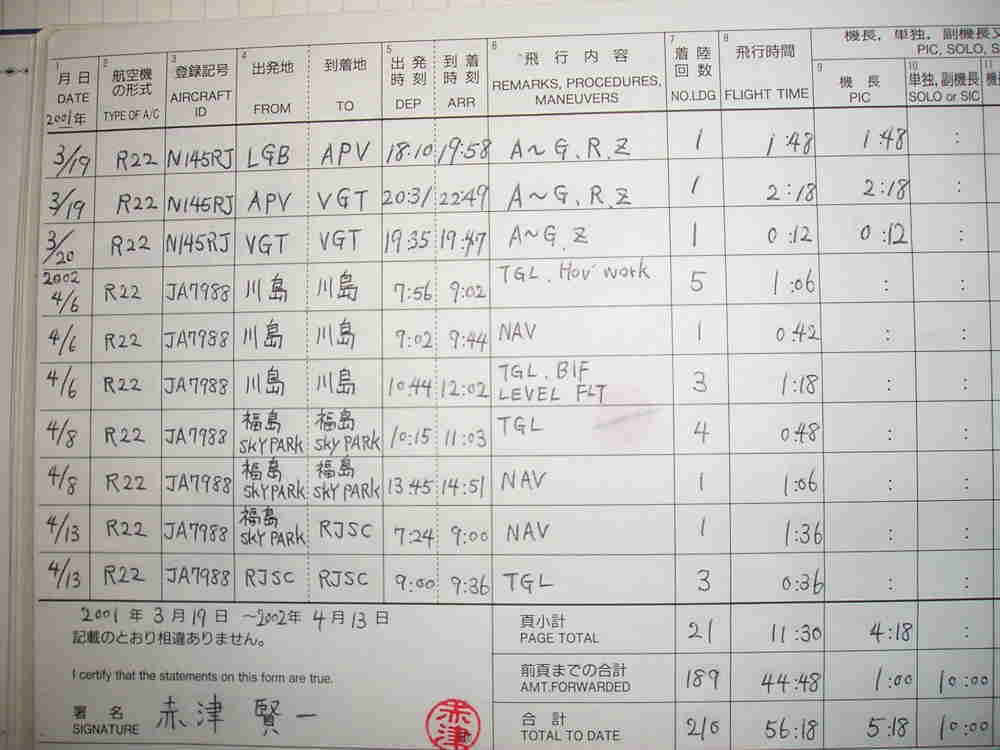 機長, 単独, 副機長又
PIC, SOLO, S
1 2 3 4 5 6 7 8 9 10 11
月日 航空機の形式 登録記号 出発地 到着地 出発時刻 到着時刻 飛行内容 着陸回数 飛行時間 機長 単独, 副機長 機
DATE TYPE OF A/C AIRCRAFT ID FROM TO DEP ARR REMARKS, PROCEDURES, MANEUVERS NO.LDG FLIGHT TIME PIC SOLO or SIC
2001年
3/19 R22 N145RJ LGB APV 18:10 19:58 A~G, R, Z 1 1:48 1:48 :
3/19 R22 N145RJ APV VGT 20:31 22:49 A~G, R, Z 1 2:18 2:18 :
3/20 R22 N145RJ VGT VGT 19:35 19:47 A~G, Z 1 0:12 0:12 :
2002
4/6 R22 JA7988 川島 川島 7:56 9:02 TGL. Hov' work 5 1:06 : :
4/6 R22 JA7988 川島 川島 9:02 9:44 NAV 1 0:42 : :
4/6 R22 JA7988 川島 川島 10:44 12:02 TGL. BIF LEVEL FLT 3 1:18 : :
4/8 R22 JA7988 福島 SKY PARK 福島 SKY PARK 10:15 11:03 TGL 4 0:48 : :
4/8 R22 JA7988 福島 SKY PARK 福島 SKY PARK 13:45 14:51 NAV 1 1:06 : :
4/13 R22 JA7988 福島 SKY PARK RJSC 7:24 9:00 NAV 1 1:36 : :
4/13 R22 JA7988 RJSC RJSC 9:00 9:36 TGL 3 0:36 : :
2001年3月19日 ~2002年4月13日
記載のとおり相違ありません。
I certify that the statements on this form are true.
署名
SIGNATURE 赤津 賢一
赤津
頁小計
PAGE TOTAL 21 11:30 4:18 :
前頁までの合計
AMT.FORWARDED 189 44:48 1:00 10:00
合計
TOTAL TO DATE 210 56:18 5:18 10:00